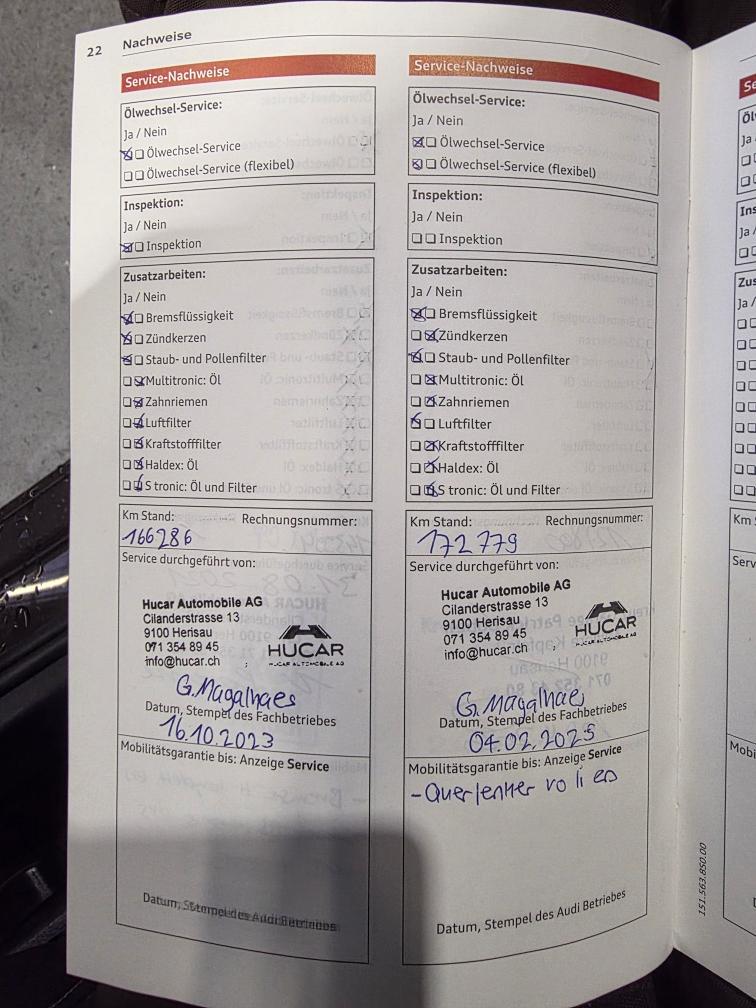 22 Nachweise
Service-Nachweise
Ölwechsel-Service:
Ja / Nein
Ölwechsel-Service
Ölwechsel-Service (flexibel)
Inspektion:
Ja / Nein
Inspektion
Zusatzarbeiten:
Ja / Nein
Bremsflüssigkeit
Zündkerzen
Staub- und Pollenfilter
Multitronic: Öl
Zahnriemen
Luftfilter
Kraftstofffilter
Haldex: Öl
S tronic: Öl und Filter
Km Stand: Rechnungsnummer:
166286
Service durchgeführt von:
Hucar Automobile AG
Cilanderstrasse 13
9100 Herisau
071 354 89 45
info@hucar.ch
HUCAR
HUCAR AUTOMOBILE AG
G. Magalhaes
Datum, Stempel des Fachbetriebes
16.10.2023
Mobilitätsgarantie bis: Anzeige Service
Datum, Stempel des Audi Betriebes
Service-Nachweise
Ölwechsel-Service:
Ja / Nein
Ölwechsel-Service
Ölwechsel-Service (flexibel)
Inspektion:
Ja / Nein
Inspektion
Zusatzarbeiten:
Ja / Nein
Bremsflüssigkeit
Zündkerzen
Staub- und Pollenfilter
Multitronic: Öl
Zahnriemen
Luftfilter
Kraftstofffilter
Haldex: Öl
S tronic: Öl und Filter
Km Stand: Rechnungsnummer:
172779
Service durchgeführt von:
Hucar Automobile AG
Cilanderstrasse 13
9100 Herisau
071 354 89 45
info@hucar.ch
HUCAR
HUCAR AUTOMOBILE AG
G. Magalhaes
Datum, Stempel des Fachbetriebes
04.02.2025
Mobilitätsgarantie bis: Anzeige Service
- Querlenker vo li
Datum, Stempel des Audi Betriebes
151.563.850.00
Se
Öl
Ja
Ins
Ja /
Zus
Ja /
Km
Serv
Mobi